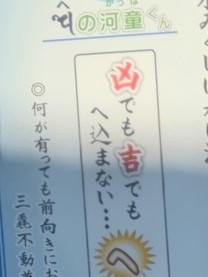 の河童くん
かっぱ
凶でも吉でも
へ込まない…
へ
◎何が有っても前向きにお
三毳不動尊